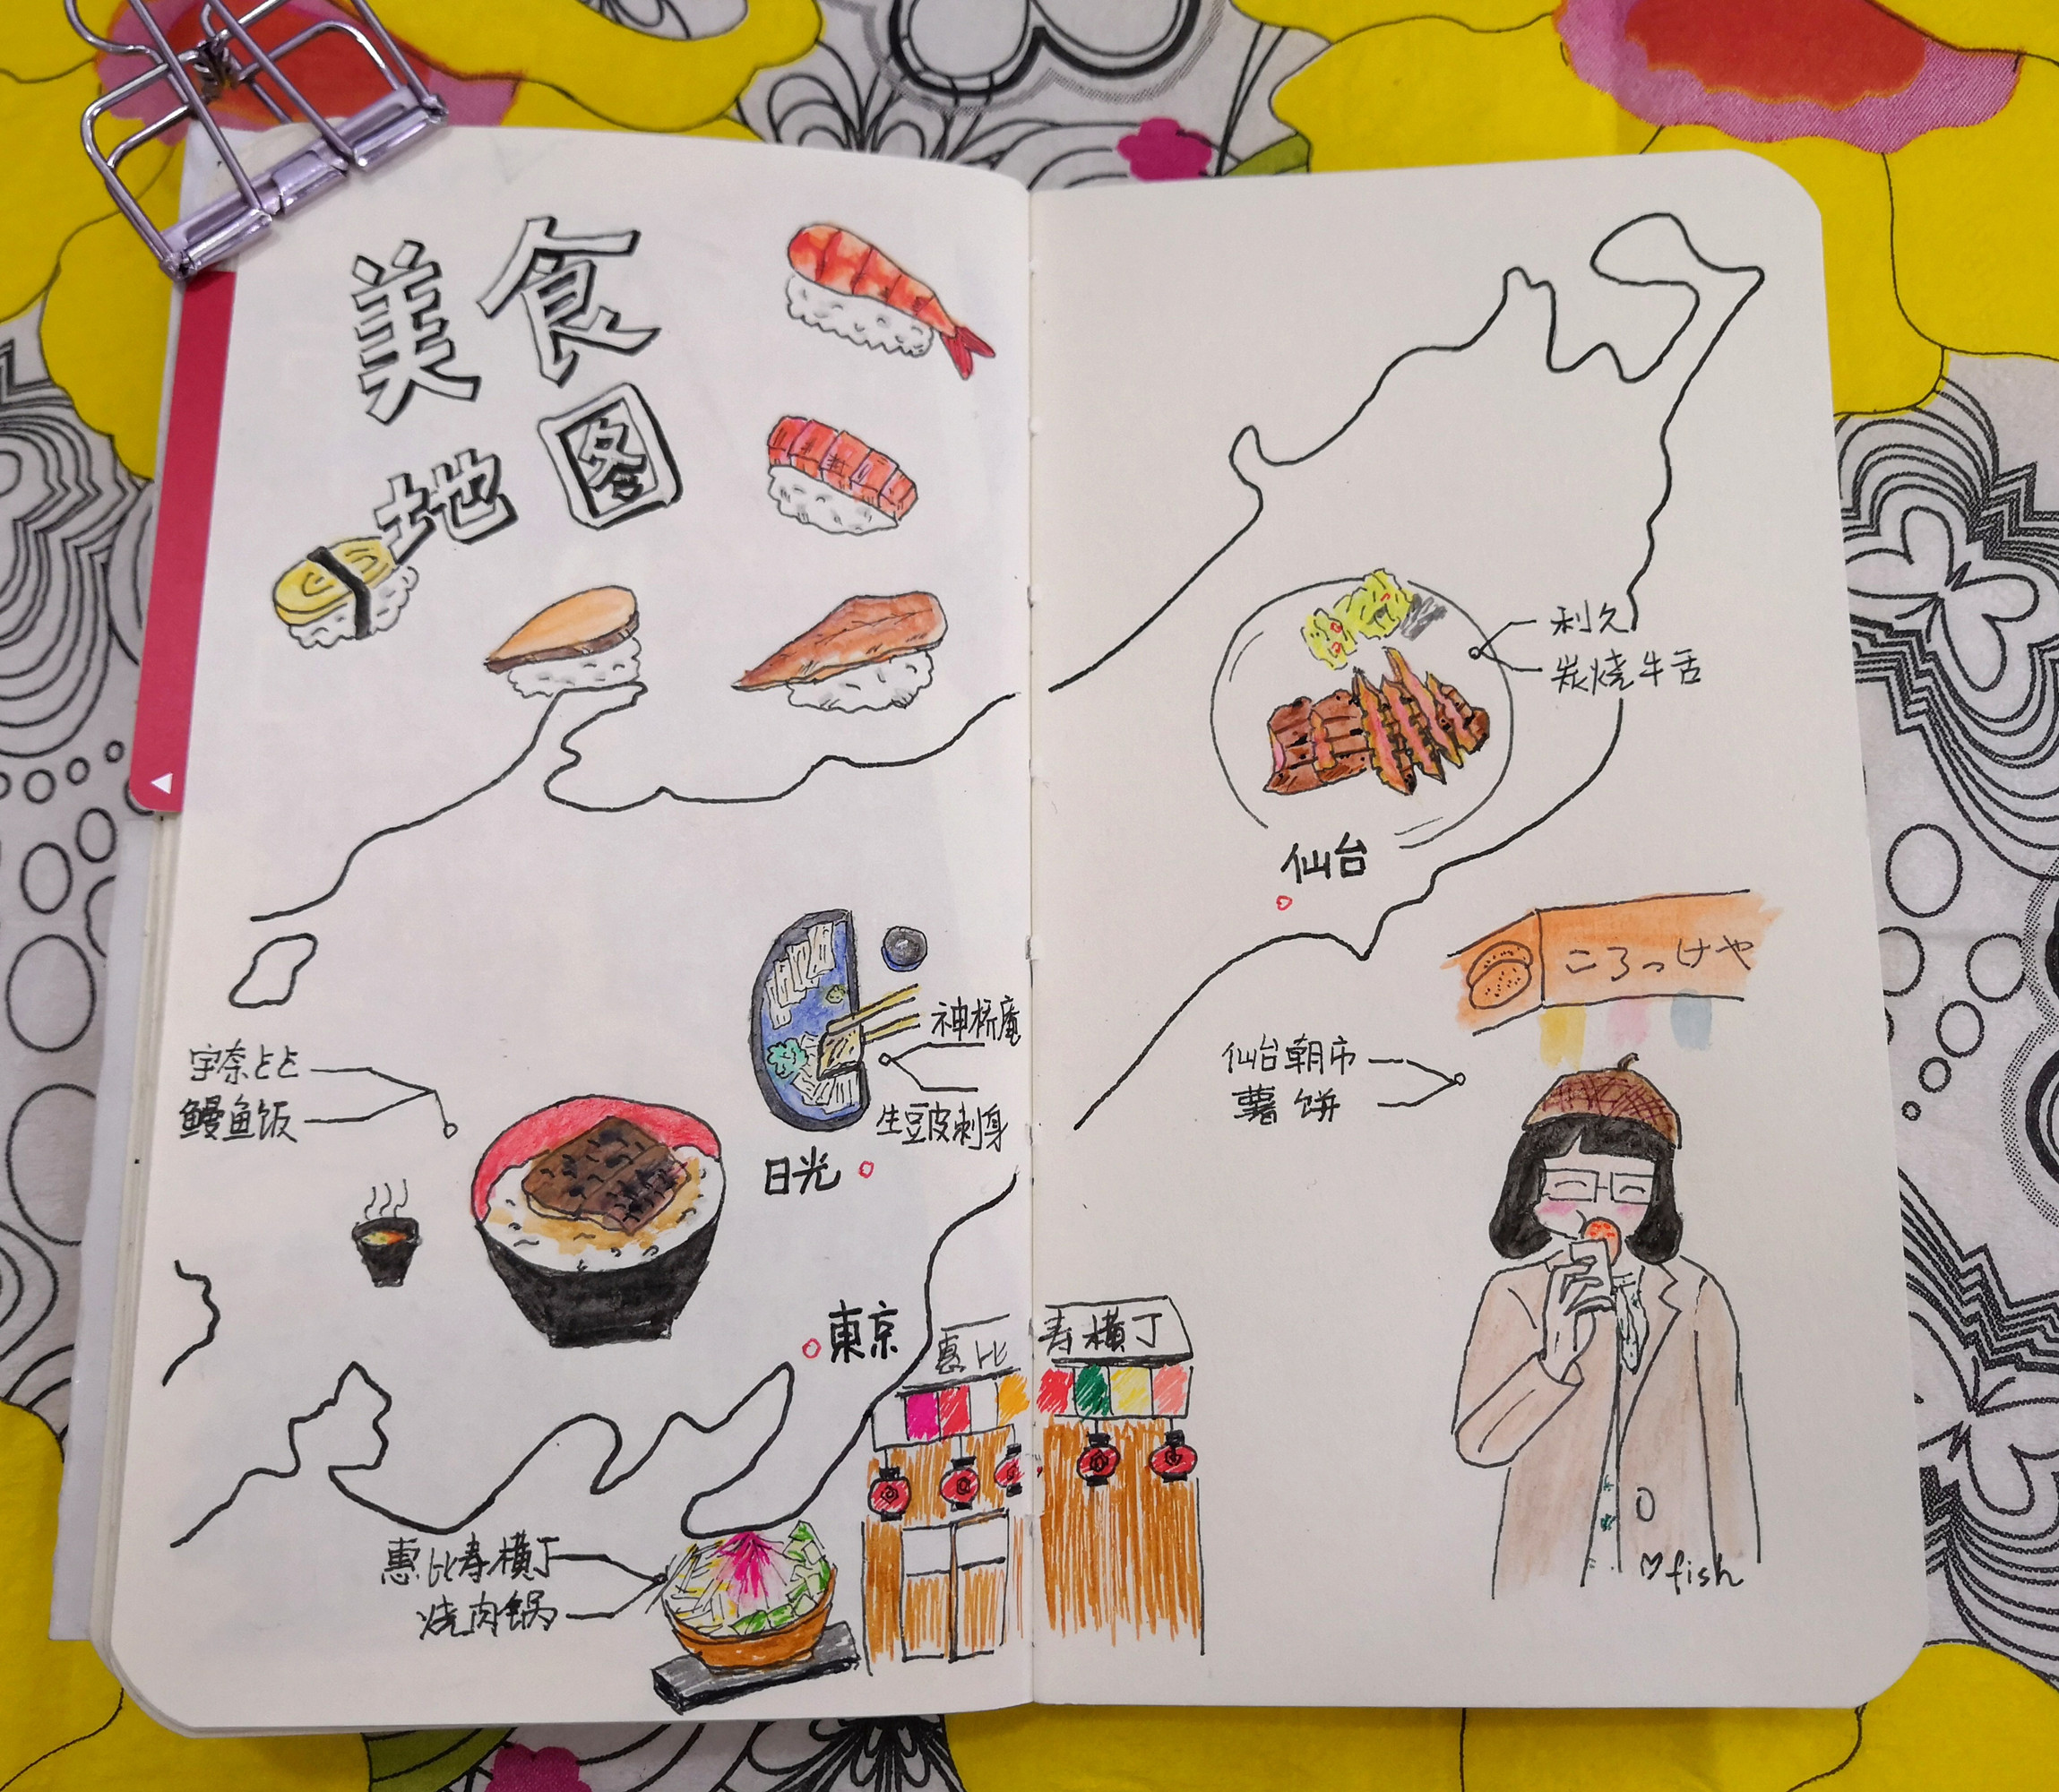 美食
地图
宇奈とと
鳗鱼饭
神桥庵
生豆皮刺身
日光
東京
惠比寿横丁
惠比寿横丁
烧肉锅
利久
炭烧牛舌
仙台
ころっけや
仙台朝市
薯饼
fish